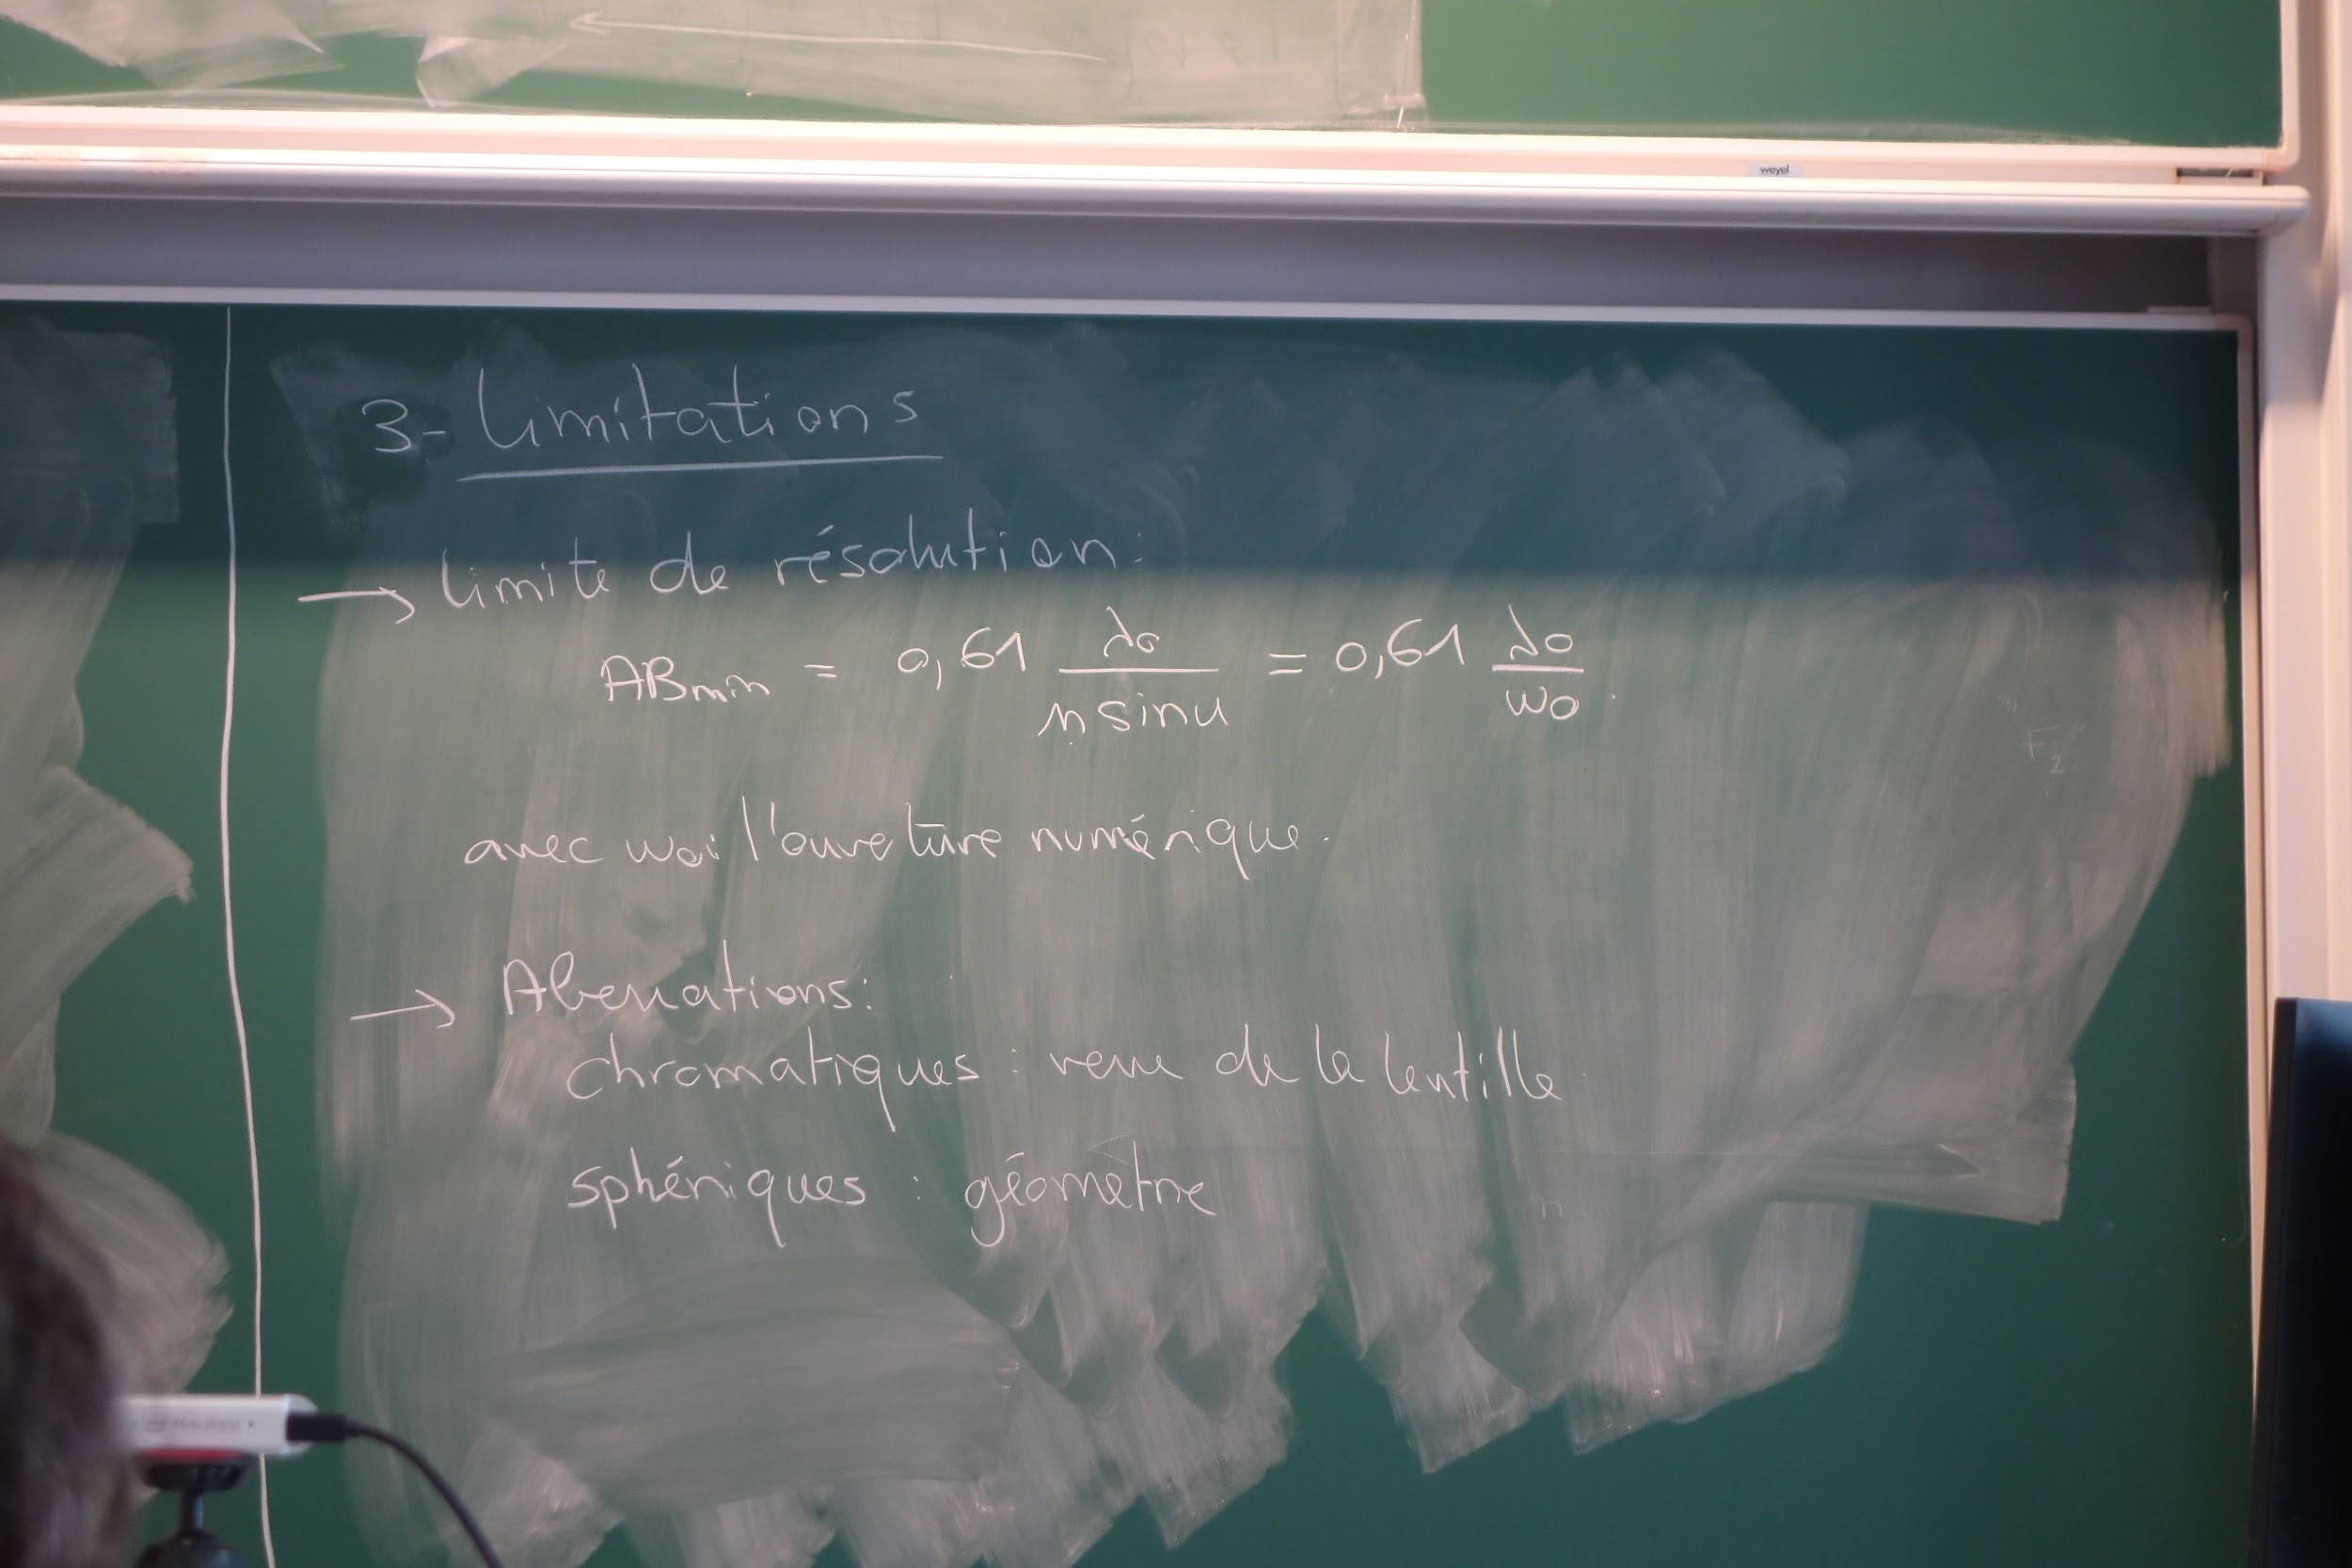 weyel
3- Limitations
→ limite de résolution:
ABmin = 0,61 λ0 / n sinu = 0,61 λ0 / w0.
avec wo: l'ouverture numérique.
→ Aberrations:
chromatiques : verre de la lentille
sphériques : géométrie
F2'